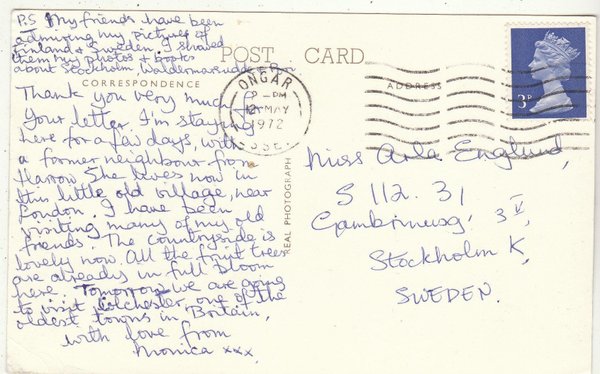 P.S My friends have been
admiring my pictures of
Finland & Sweden. I showed
them my photos & books
about Stockholm, Waldemarsudde
POST CARD
CORRESPONDENCE
ADDRESS
Thank you very much for
your letter. I'm staying
here for a few days, with
a former neighbour from
Harrow. She lives now in
this little old village, near
London. I have been
visiting many of my old
friends. The countryside is
lovely now. All the fruit trees
are already in full bloom
here. Tomorrow we are going
to visit Colchester, one of the
oldest towns in Britain,
with love from
Monica xxx,
REAL PHOTOGRAPH
ONGAR
PM
MAY
1972
ESSEX
3P
Miss Arla Englund,
S 112. 31
Gambrinusg. 3 V,
Stockholm K,
SWEDEN.